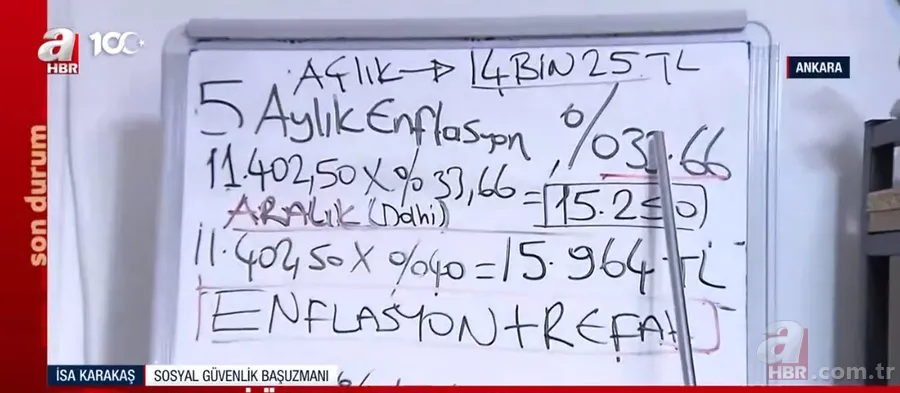 a
HBR
100
AÇLIK → 14 BİN 25 TL
ANKARA
5 Aylık Enflasyon, %33.66
11.402,50 X %33,66 = 15.250
ARALIK (Dahi)
11.402,50 X %40 = 15.964 TL
ENFLASYON + REFAH
son durum
a
HBR.com.tr
İSA KARAKAŞ
SOSYAL GÜVENLİK BAŞUZMANI